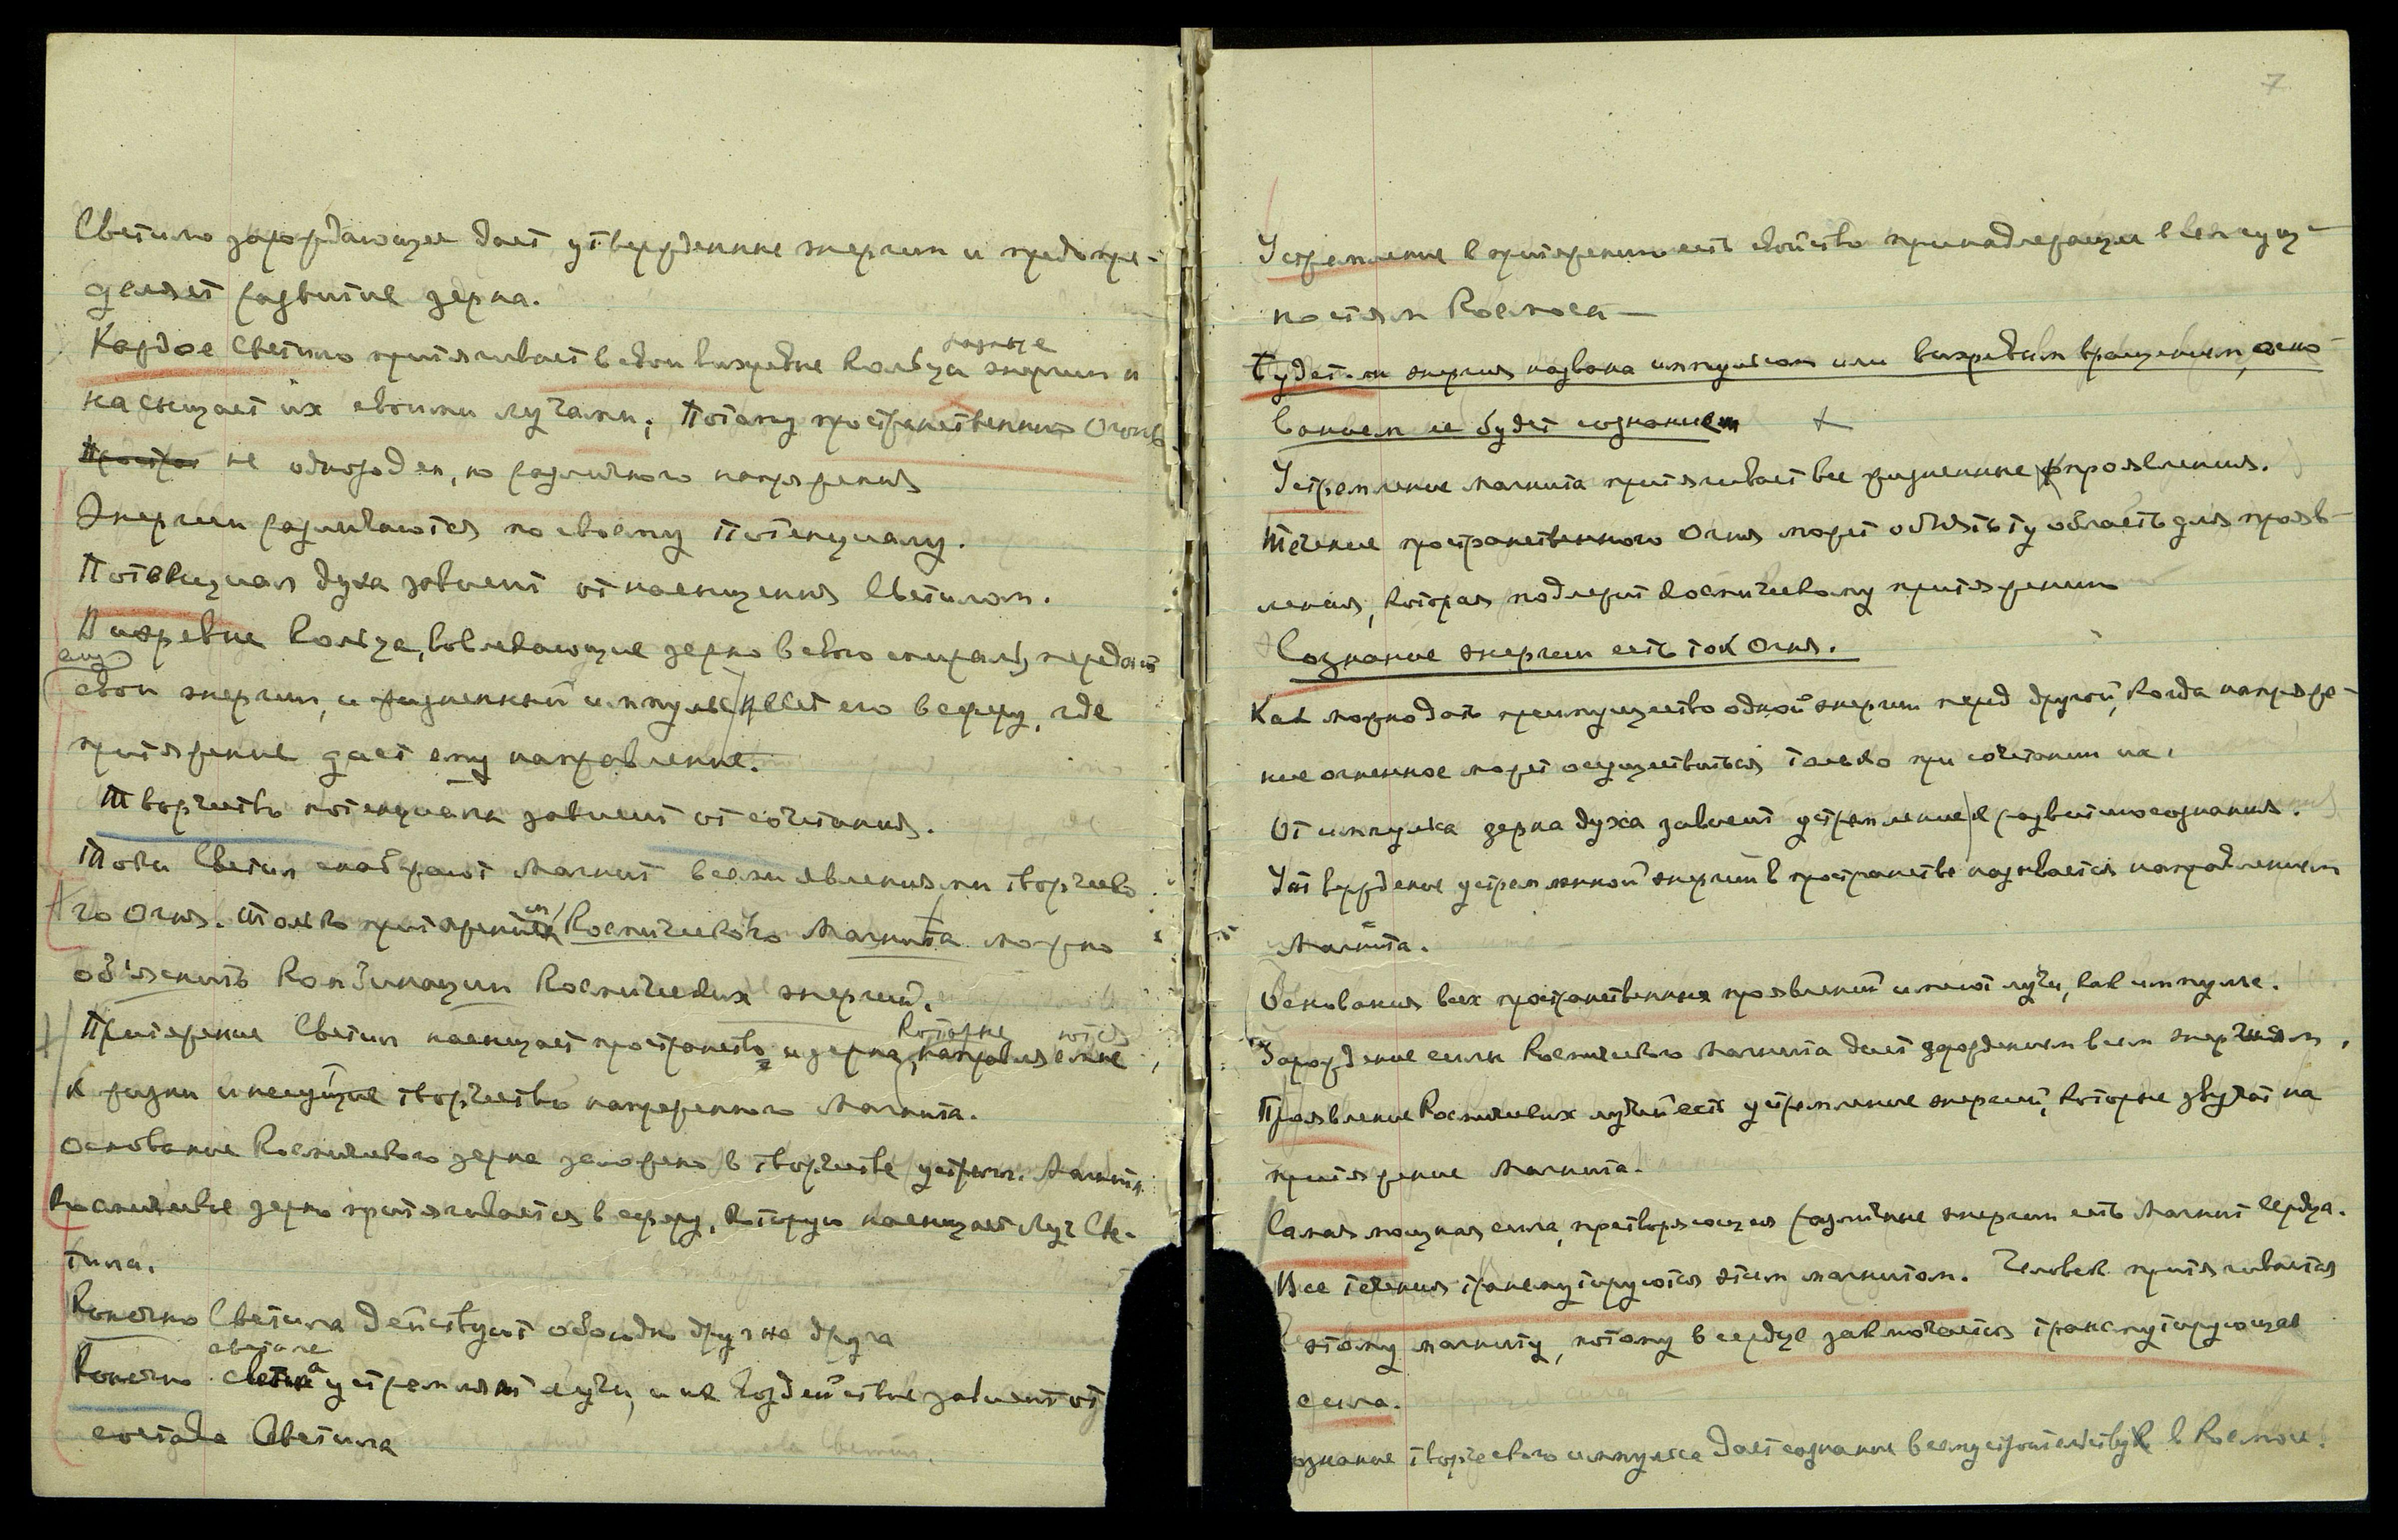 Светило зарождающее дает утвержденные энергии и предопре-
деляет развитие зерна.
Каждое Светило притягивает в свои вихревые кольца разные энергии и
насыщает их своими лучами; Потому пространственный Огонь
Простран не однороден, но различного напряжения
Энергии различаются по своему Потенциалу.
Потенциал духа зависит от насыщения Светилом.
Вихревые кольца, вовлекающие зерно в свою спираль, передают
ему
свои энергии, и жизненный импульс несет его в сферу, где
притяжение дает ему направление.
Творчество потенциала зависит от сочетания.
Токи Светил снабжают Магнит всеми явлениями творческо
го Огня. Только притяжением Космического Магнита можно
об'яснить комбинации космических энергий.
Притяжение Светил насыщает пространство и зерна, которые направляются
к жизни и несущие творчество напряженного Магнита.
Основание Космического зерна заложено в творчестве устрем. Магнита.
Космическое зерно притягивается в сферу, которую насыщает Луч Све-
тила.
Конечно Светила действуют обоюдно друг на друга
светила
Конечно устремляют лучи, и их воздействие зависит от
состава Светила
7
Устремление в притяжению есть свойство принадлежащее всем сущ-
ностям Космоса —
Будет ли энергия названа импульсом или вихревым вращением, осно-
ванием ее будет сознанием
Устремление магнита притягивает все жизненные проявления.
Течение пространственного Огня может объять ту область для прояв-
ления, которая подлежит космическому притяжению
Сознание энергии есть ток Огня.
Как можно дать преимущество одной энергии перед другой, когда напряже-
ние огненное может осуществиться только при сочетании их.
От импульса зерна духа зависит устремление к развитию сознания.
Утверждение устремленной энергии в пространстве называется направлением
Магнита.
Основания всех пространственных проявлений имеют лучи, как импульс.
Зарождение силы Космического Магнита дает зарождение всем энергиям.
Проявление Космических лучей есть устремление энергий, которые звучат на
притяжение Магнита.
Самая мощная сила, претворяющая различные энергии есть Магнит Сердца.
Все течения трансмутируются этим магнитом. Человек притягивается
этому магниту, потому в сердце заключается трансмутирующая
сила.
ознание творческого импульса дает сознание всему строительству в Космосе.